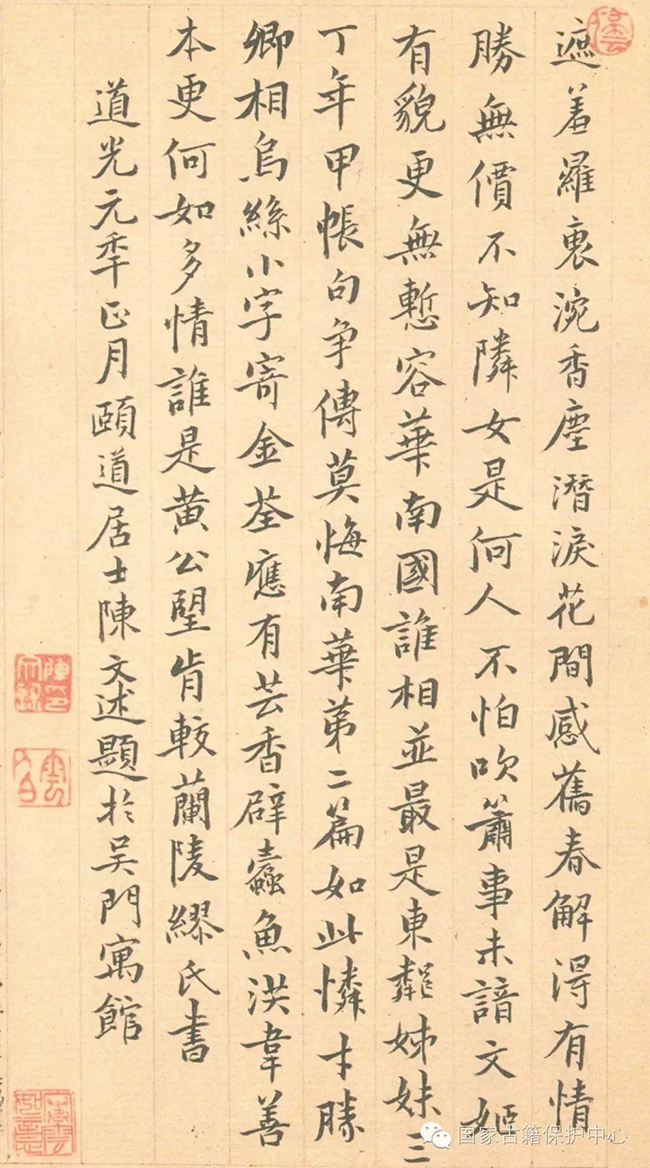 遮羞羅褎涴香塵潛淚花間感舊春解得有情
勝無價不知隣女是何人不怕吹簫事未諳文姬
有貌更無慙容華南國誰相並最是東鄰姊妹三
丁年甲帳句爭傳莫悔南華第二篇如此憐才勝
卿相烏絲小字寄金荃應有芸香辟蠹魚洪韋善
本更何如多情誰是黃公望肯較蘭陵繆氏書
道光元年正月頤道居士陳文述題於吳門寓館
陳印文述
雲伯
国家古籍保护中心